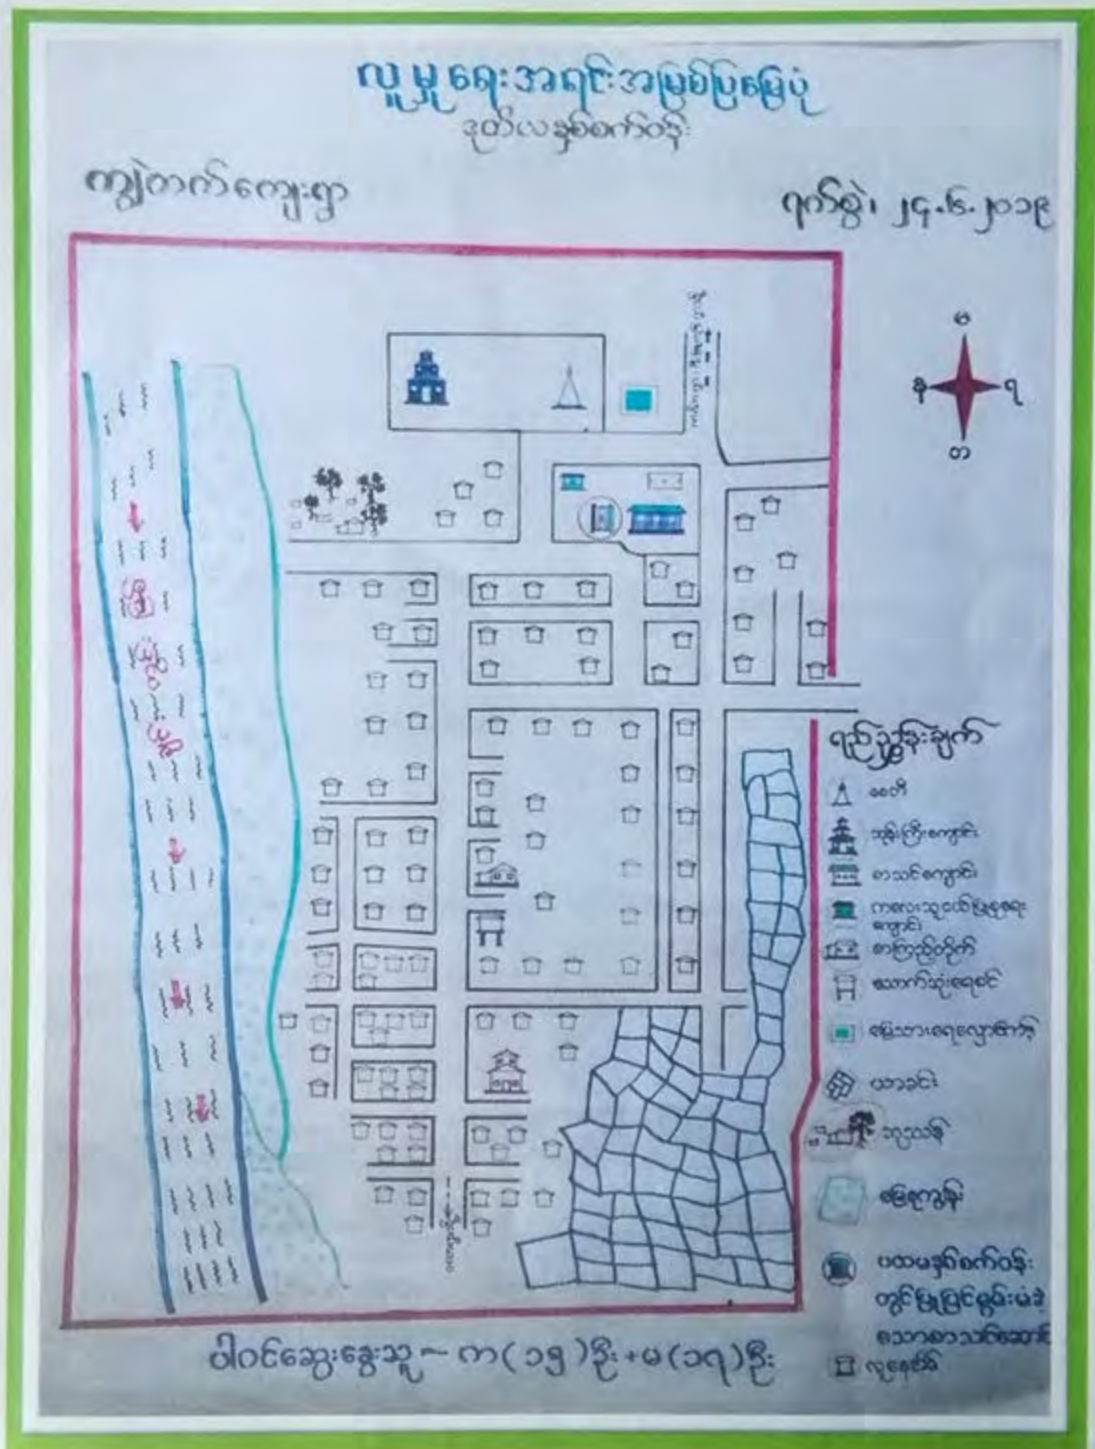 လူမှုရေးအရင်းအမြစ်ပြမြေပုံ
ဒုတိယနှစ်စက်ဝန်း
ကျွဲတက်ကျေးရွာ
ရက်စွဲ၊ ၂၄.၆.၂၀၁၉
မ
န
ရ
တ
ရည်ညွှန်းချက်
စေတီ
ဘုန်းကြီးကျောင်း
စာသင်ကျောင်း
ကလေးသူငယ်ပြုစုရေး
ကျောင်း
စာကြည့်တိုက်
သောက်သုံးရေစင်
မြေသားရေလှောင်ကန်
ယာခင်း
သုဿန်
မြေနုကျွန်း
ပထမနှစ်စက်ဝန်း
တွင်ပြုပြင်မွမ်းမံခဲ့
သောစာသင်ဆောင်
လူနေအိမ်
ပါဝင်ဆွေးနွေးသူ - က(၁၅)ဦး+မ(၁၇)ဦး